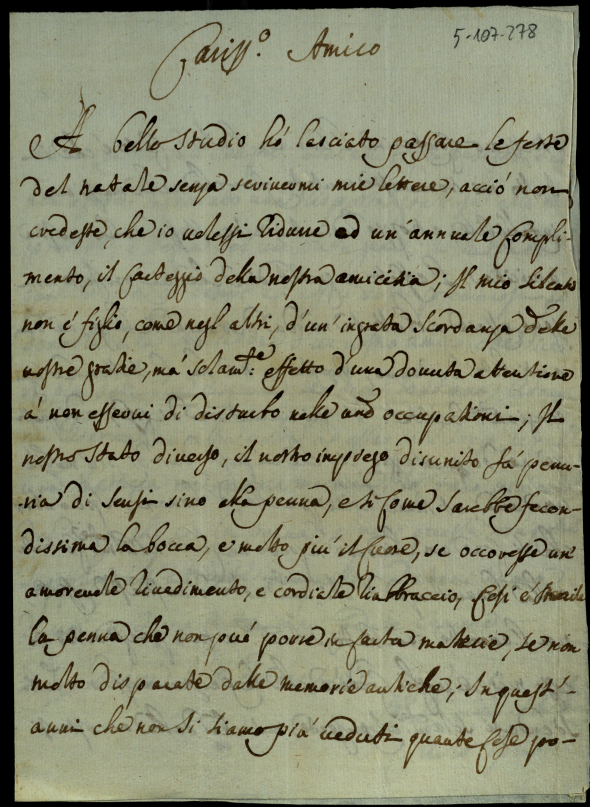 5-107-278
Cariss.º Amico
A bello studio hò lasciato passare le feste
del natale senza scriuerui mie lettere, acciò non
credeste, che io uolessi ridurre ad un'annuale Compli-
mento, il Carteggio della nostra amicitia; Il mio Silentio
non é figlio, come negl'altri, d'un'ingrata Scordanza delle
uostre gratie, mà solam.te effetto d'una douuta attentione
à non esserui di disturbo nelle occupationi; Il
nostro Stato diuerso, il nostro impiego disunito fà penu-
ria di Sensi sino alla penna, e si Come Sarebbe fecon-
dissima la bocca, e molto più il Cuore, se occoresse un'
amoreuole riuedimento, e cordiale riabbraccio, Cosi é Sterile
la penna che non può porre in Carta materie, se non
molto disparate dalle memorie antiche; In quest'-
anni che non si siamo più ueduti quante Cose po-